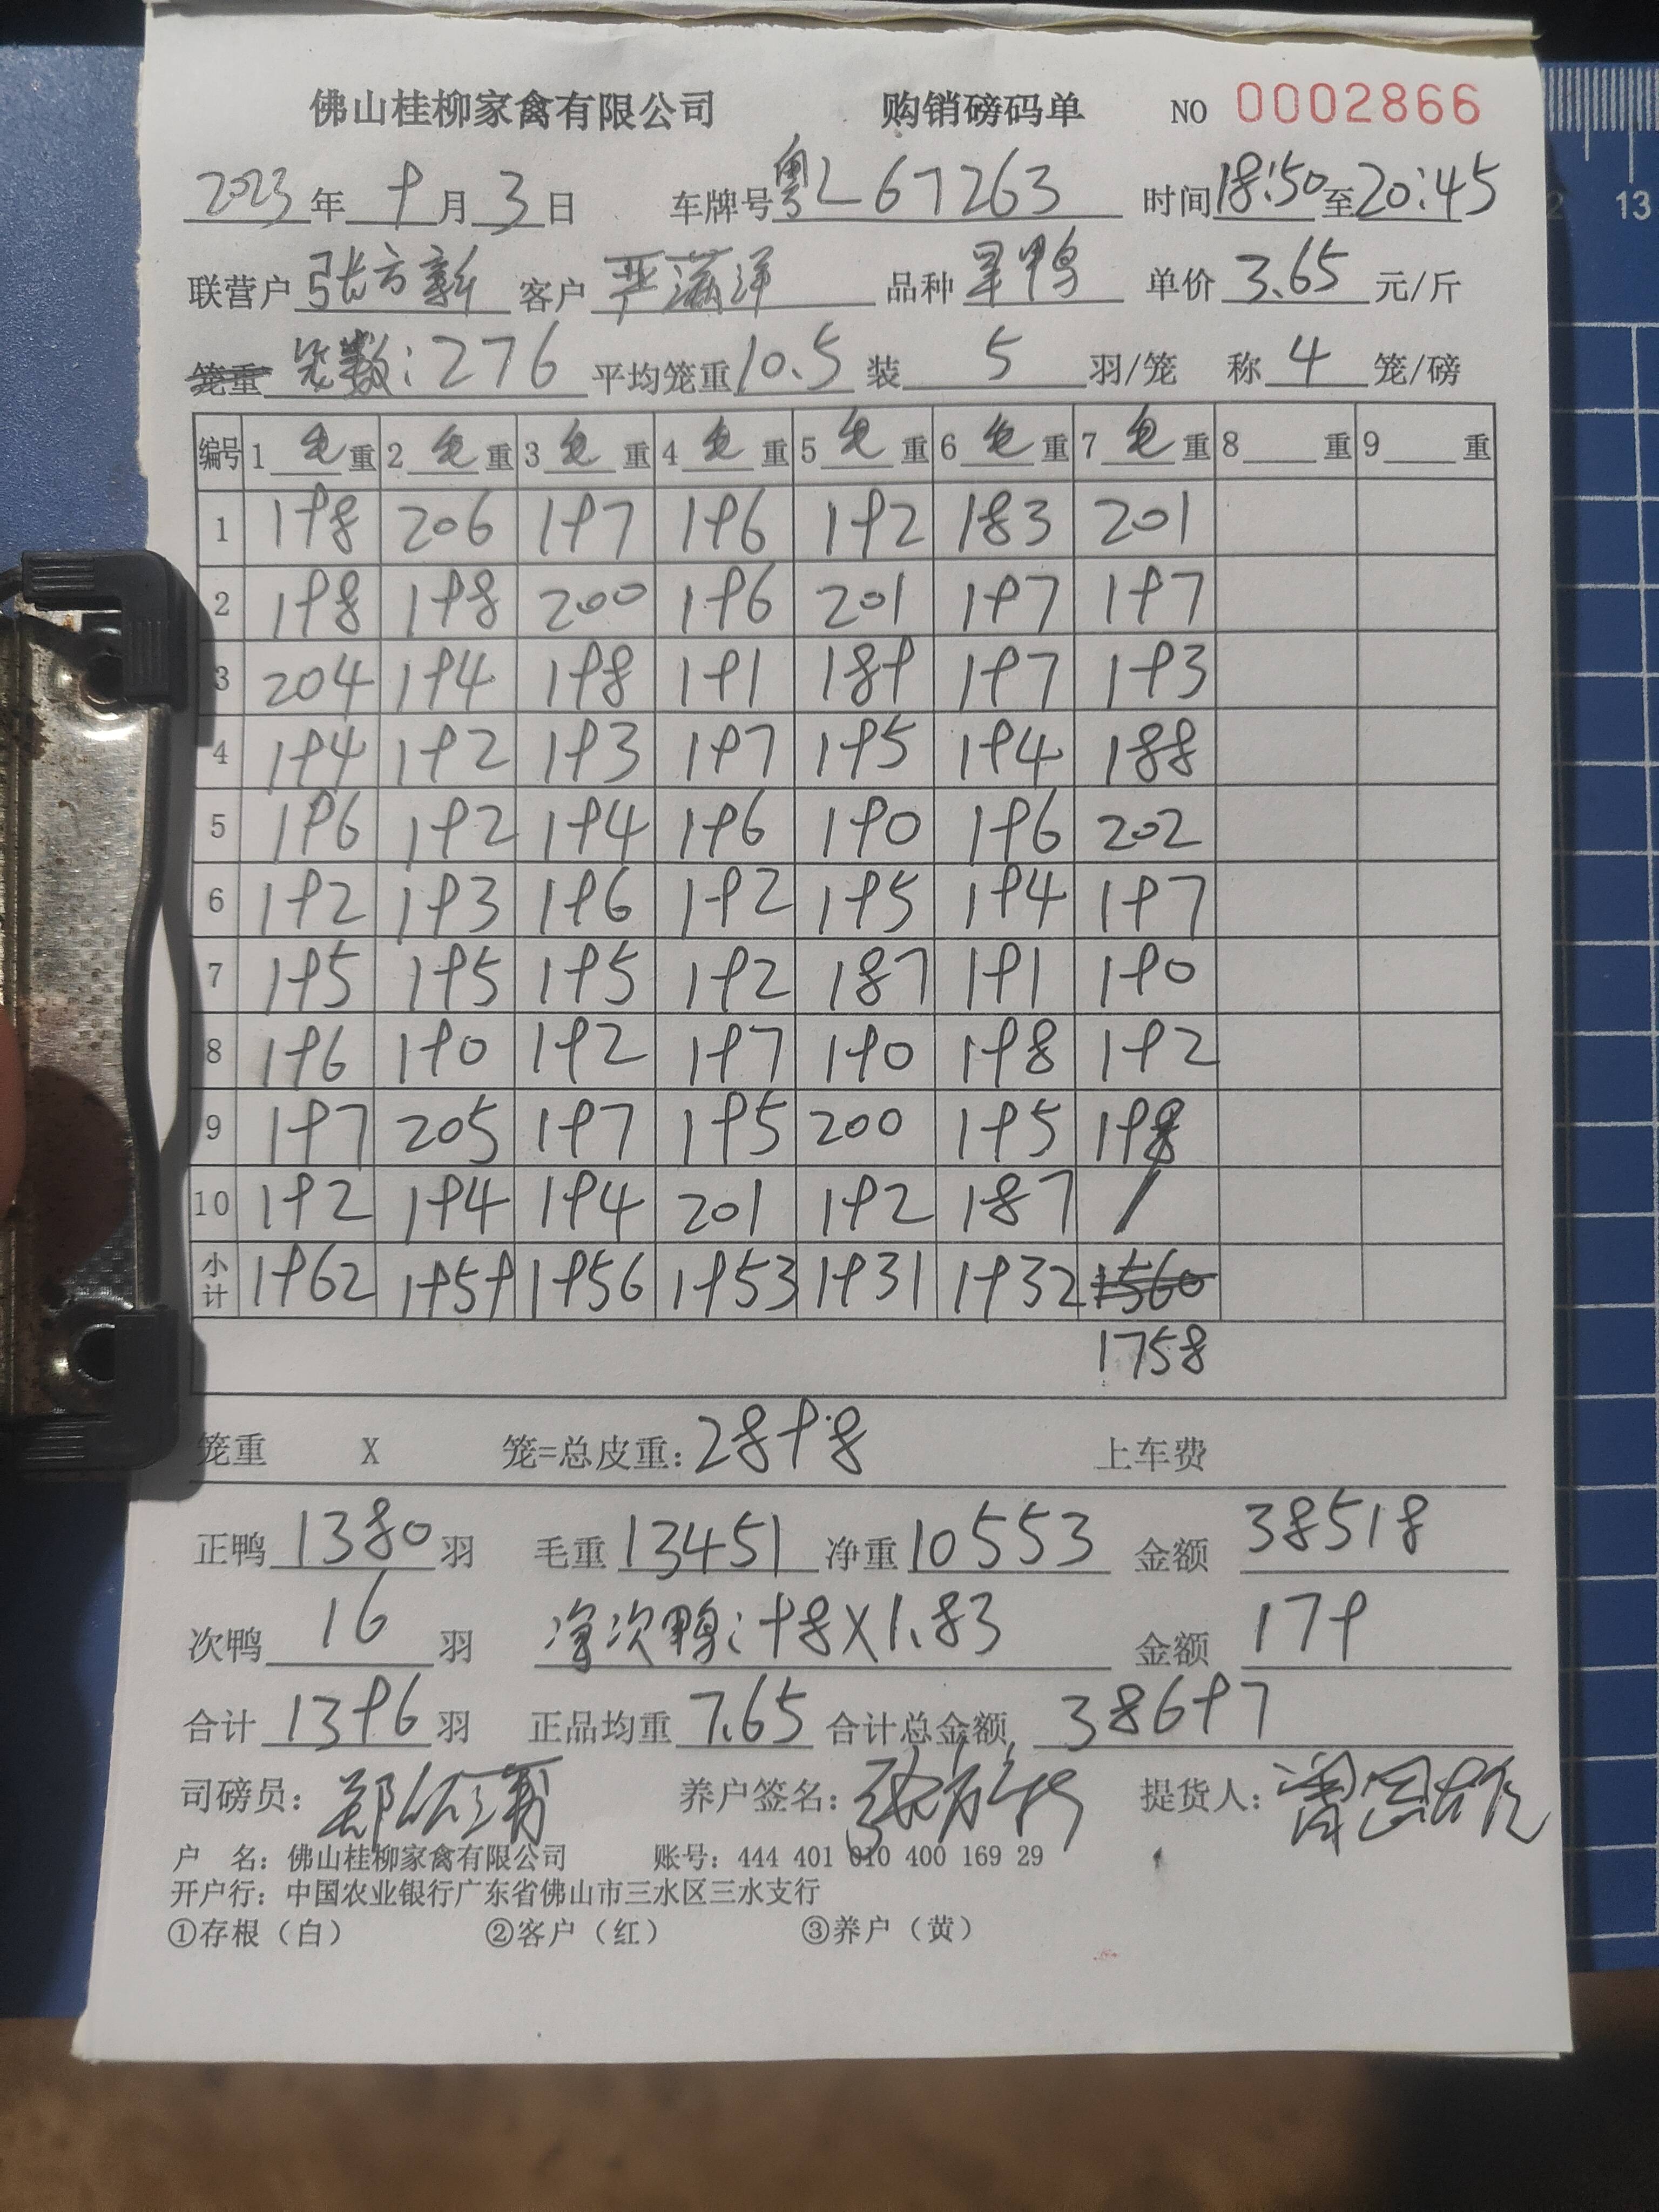 佛山桂柳家禽有限公司 购销磅码单 NO 0002866
2023年 9月 3日 车牌号 粤L67263 时间18:50至20:45
联营户 张方新 客户 严滋洋 品种 旱鸭 单价 3.65 元/斤
笼重 笼数:276 平均笼重10.5 装 5 羽/笼 称 4 笼/磅
编号 1 毛重 2 毛重 3 毛重 4 毛重 5 毛重 6 毛重 7 毛重 8 重 9 重
1 198 206 197 196 192 183 201
2 198 198 200 196 201 197 197
3 204 194 198 191 189 197 193
4 194 192 193 197 195 194 188
5 196 192 194 196 190 196 202
6 192 193 196 192 195 194 197
7 195 195 195 192 187 191 190
8 196 190 192 197 190 198 192
9 197 205 197 195 200 195 198
10 192 194 194 201 192 187 /
小计 1962 1959 1956 1953 1931 1932 1560
1758
笼重 X 笼=总皮重:2898 上车费
正鸭 1380 羽 毛重 13451 净重 10553 金额 38518
次鸭 16 羽 净次鸭:98X1.83 金额 179
合计 1396 羽 正品均重 7.65 合计总金额 38697
司磅员: 养户签名: 张方新 提货人:
户 名: 佛山桂柳家禽有限公司 账号: 444 401 010 400 169 29
开户行: 中国农业银行广东省佛山市三水区三水支行
①存根（白） ②客户（红） ③养户（黄）
13